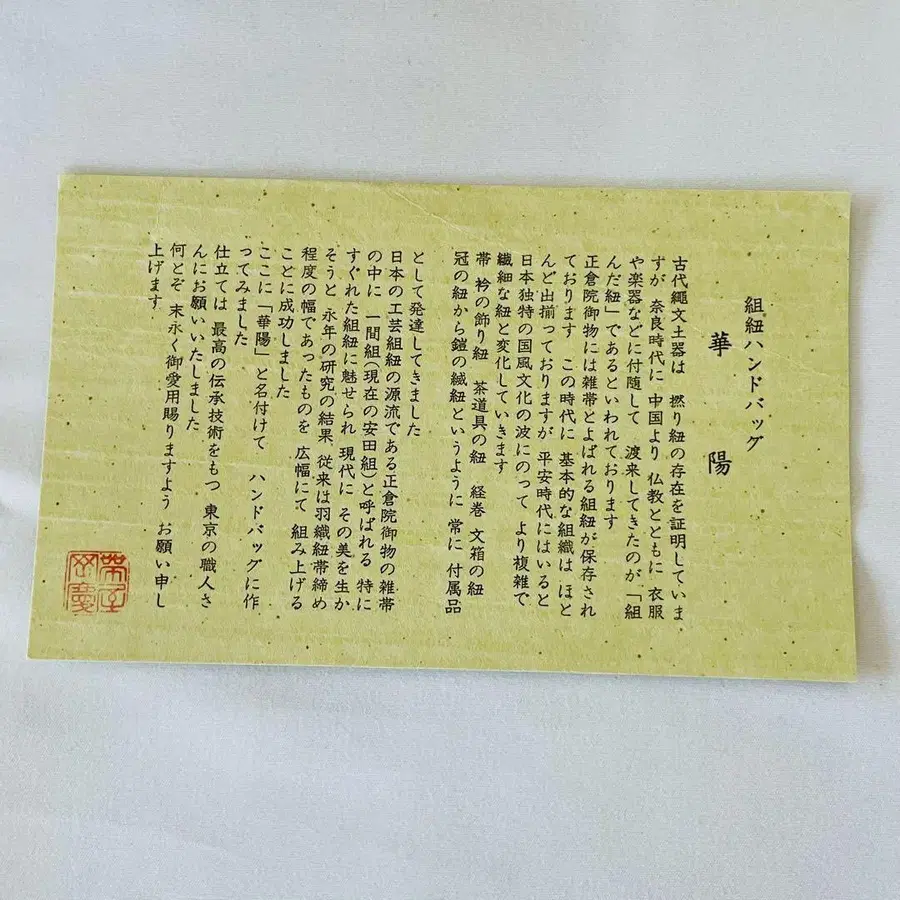 組紐ハンドバッグ
華陽
古代縄文土器は 撚り紐の存在を証明していま
すが 奈良時代に 中国より 仏教とともに 衣服
や楽器などに付随して 渡来してきたのが、「組
んだ紐」であるといわれております
正倉院御物には雑帯とよばれる組紐が保存され
ております この時代に 基本的な組織は ほと
んど出揃っておりますが 平安時代にはいると
日本独特の国風文化の波にのって より複雑で
繊細な紐と変化していきます
帯 衿の飾り紐 茶道具の紐 経巻 文箱の紐
冠の紐から鎧の縅紐というように 常に 付属品
として発達してきました
日本の工芸組紐の源流である正倉院御物の雑帯
の中に 一間組(現在の安田組)と呼ばれる 特に
すぐれた組紐に魅せられ 現代に その美を生か
そうと 永年の研究の結果、従来は羽織紐帯締め
程度の幅であったものを 広幅にて 組み上げる
ことに成功しました
ここに「華陽」と名付けて ハンドバッグに作
ってみました
仕立ては 最高の伝承技術をもつ 東京の職人さ
んにお願いいたしました
何とぞ 末永く御愛用賜りますよう お願い申し
上げます